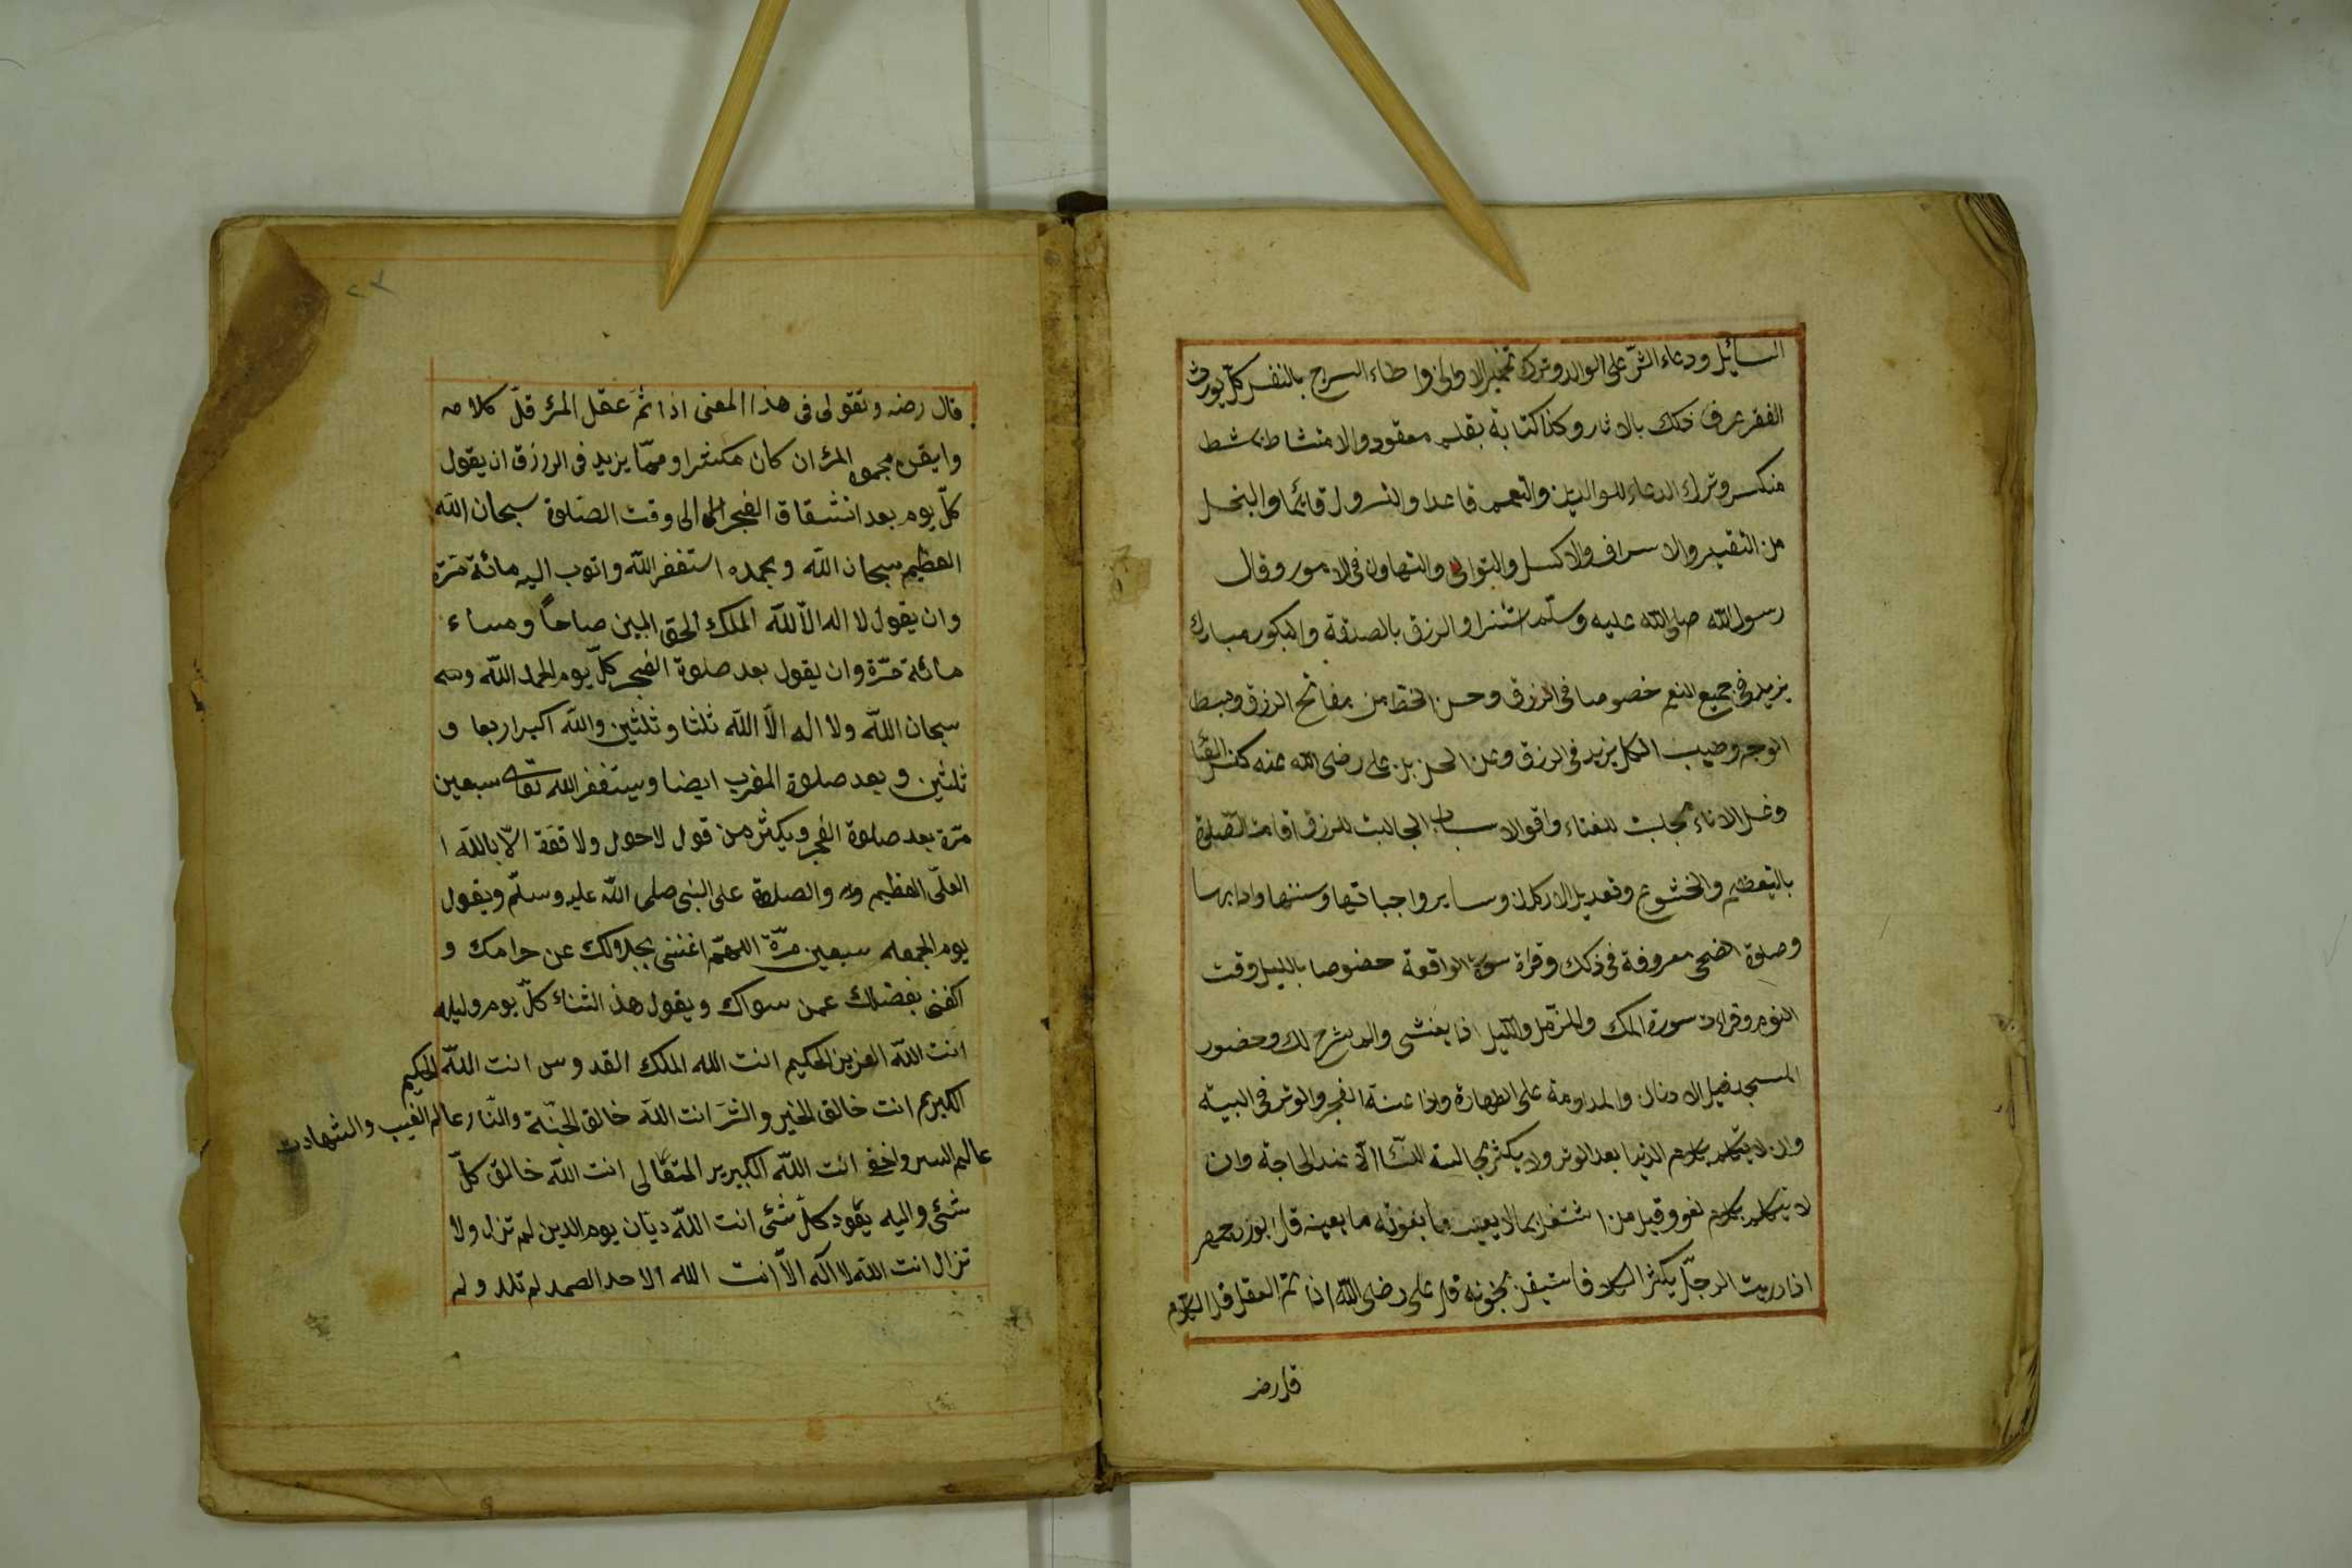 السائل ودعاء الشرّ على الوالد وترك تخمير الاوانى واطفاء السرج بالنفس كلّ يورث
الفقر عرف ذلك بالاثار وكذا كتابة بقلم معقود والامتشاط بمشط
منكسر وترك الدعاء للوالدين والتعمم قاعدا والتسرول قائما والبخل
من التقتير والاسراف والاكسل والتوانى والتهاون فى الامور وقال
رسول الله صلى الله عليه وسلّم استنزلوا الرزق بالصدقة والبكور مبارك
يزيد فى جميع النعم خصوصا فى الرزق وحسن الخط من مفاتح الرزق وبسط
الوجه وطيب الكلام يزيد فى الرزق وعن الحسن بن على رضى الله عنه كنس الفنا
وغسل الاناء مجلبة للغناء واقوى الاسباب الجالبة للرزق اقامت الصلوة
بالتعظيم والخشوع وتعديل الاركان وساير واجباتها وسننها وادابها
وصلوة الضحى معروفة فى ذلك وقراة سورة الواقعة خصوصا بالليل وقت
النوم وقراءت سورة الملك والمزّمل والليل اذا يغشى والم نشرح لك وحضور
المسجد قبل الاذان والمداومة على الطهارة واداء سنة الفجر والوتر فى البيت
وان لا يتكلم بكلام الدنيا بعد الوتر ولا يكثر مجالسة النسا الا عند الحاجة وان
لا يتكلم بكلام لغو وقيل من اشتغل بما لا يعينه ما يفوته ما يعينه قال بوزرجمهر
اذا رريت الرجل يكثر الكلام فاستيقن بجنونه قال على رضى الله اذا تمّ العقل قل الكلام
قال رضہ
۲۳
قال رضہ وتقولى فى هذا المعنى اذا تمّ عقل المرء قلّ كلامه
وايقن بحمق المرء ان كان مكثرا ومما يزيد فى الررزق ان يقول
كلّ يوم بعد انشقاق الفجر الى وقت الصلوة سبحان الله
العظيم سبحان الله وبحمده استغفر الله واتوب اليه مائة مرّة
وان يقول لا اله الّا الله الملك الحق المبين صباحاً ومساء
مائة مرّة وان يقول بعد صلوة الفجر كلّ يوم الحمد الله و
سبحان الله ولا اله الّا الله ثلثا وثلثين والله اكبر اربعا و
ثلثين وبعد صلوة المغرب ايضا ويستغفر الله تعالى سبعين
مرّة بعد صلوة الفجر ويكثر من قول لا حول ولا قوّة الّا بالله ا
العلّى العظيم والصلوة على النبى صلى الله عليه وسلّم ويقول
يوم الجمعه سبعين مرّة اللهمّ اغننى بحلالك عن حرامك و
اكفنى بفضلك عمن سواك ويقول هذ الثناء كلّ يوم وليله
انت الله العزيز الحكيم انت الله الملك القدوس انت الله الحكيم
الكريم انت خالق الخير والشر انت الله خالق الجنّة والنّار عالم الغيب والشهادت
عالم السر واخفى انت الله الكبيرير المتعالى انت الله خالق كلّ
شئى واليه يعود كلّ شئى انت الله ديّان يوم الدين لم تزل ولا
تزال انت الله لا اله الّا انت الله الاحد الصمد لم تلد ولم